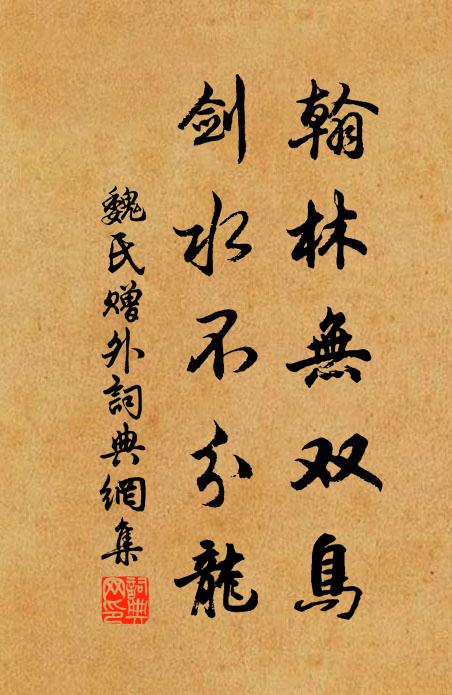 翰林無双鳥
剑水不分龍
魏氏赠外詞典網集
詞典
网印